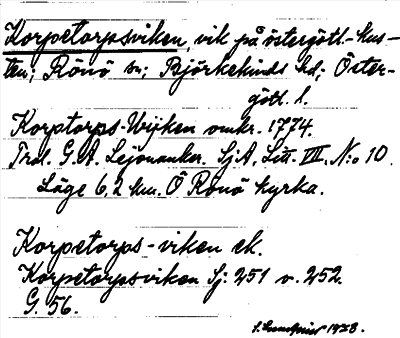 Korpetorpsviken, vik på östergötl.-kus-
ten; Rönö sn; Björkekinds hd; Öster-
götl. l.
Korptorps-Wijken omkr. 1774.
Trol. G. A. Lejonanker. SjA. Litt. VII. N:o 10.
Läge 6,2 km. Ö Rönö kyrka.
Korpetorps-viken ek.
Korpetorpsviken Sj: 251 v. 252.
G. 56.
1928.